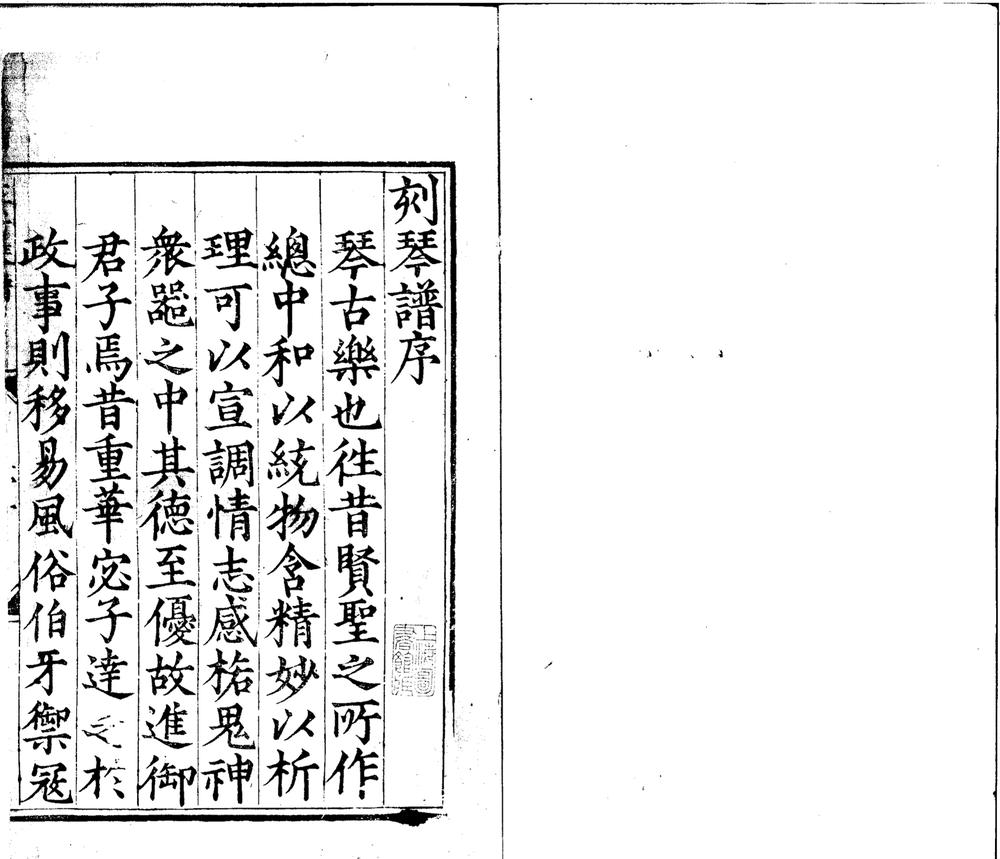 刻琴譜序
琴古樂也徃昔賢聖之所作
總中和以統物含精妙以析
理可以宣調情志感格鬼神
衆器之中其德至優故進御
君子焉昔重華宓子達之於
政事則移易風俗伯牙禦冦
上海圖
書館藏